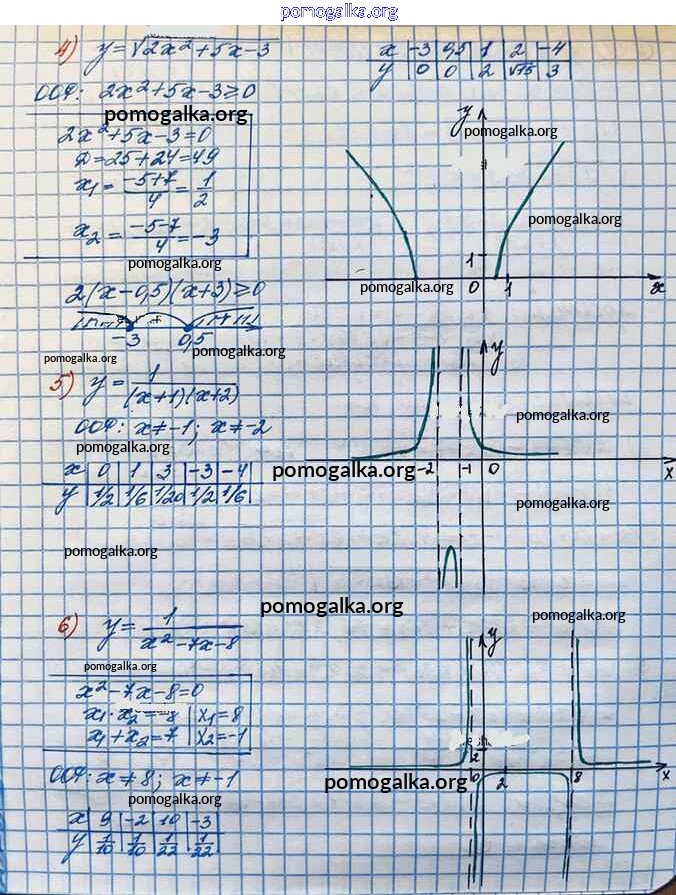 pomogalka.org
4) y=√2x²+5x-3
x | -3 | 0,5 | 1 | 2 | -4
y | 0 | 0 | 2 | √15 | 3
ООФ: 2x²+5x-3≥0
pomogalka.org
2x²+5x-3=0
Д=25+24=49
x₁ = (-5+7)/4 = 1/2
x₂ = (-5-7)/4 = -3
pomogalka.org
2(x-0,5)(x+3)≥0
-3 0,5
pomogalka.org
pomogalka.org
y
pomogalka.org
pomogalka.org
pomogalka.org
1
0 1 x
5) y = 1/((x+1)(x+2))
ООФ: x≠-1; x≠-2
pomogalka.org
x | 0 | 1 | 3 | -3 | -4
y | 1/2 | 1/6 | 1/20 | 1/2 | 1/6
pomogalka.org
y
pomogalka.org
pomogalka.org
-2 -1 0 x
pomogalka.org
pomogalka.org
pomogalka.org
6) y = 1/(x²-7x-8)
pomogalka.org
x²-7x-8=0
x₁·x₂=-8 | x₁=8
x₁+x₂=7 | x₂=-1
ООФ: x≠8; x≠-1
pomogalka.org
x | 9 | -2 | 10 | -3
y | 1/10 | 1/10 | 1/22 | 1/22
y
0 2 8 x
pomogalka.org